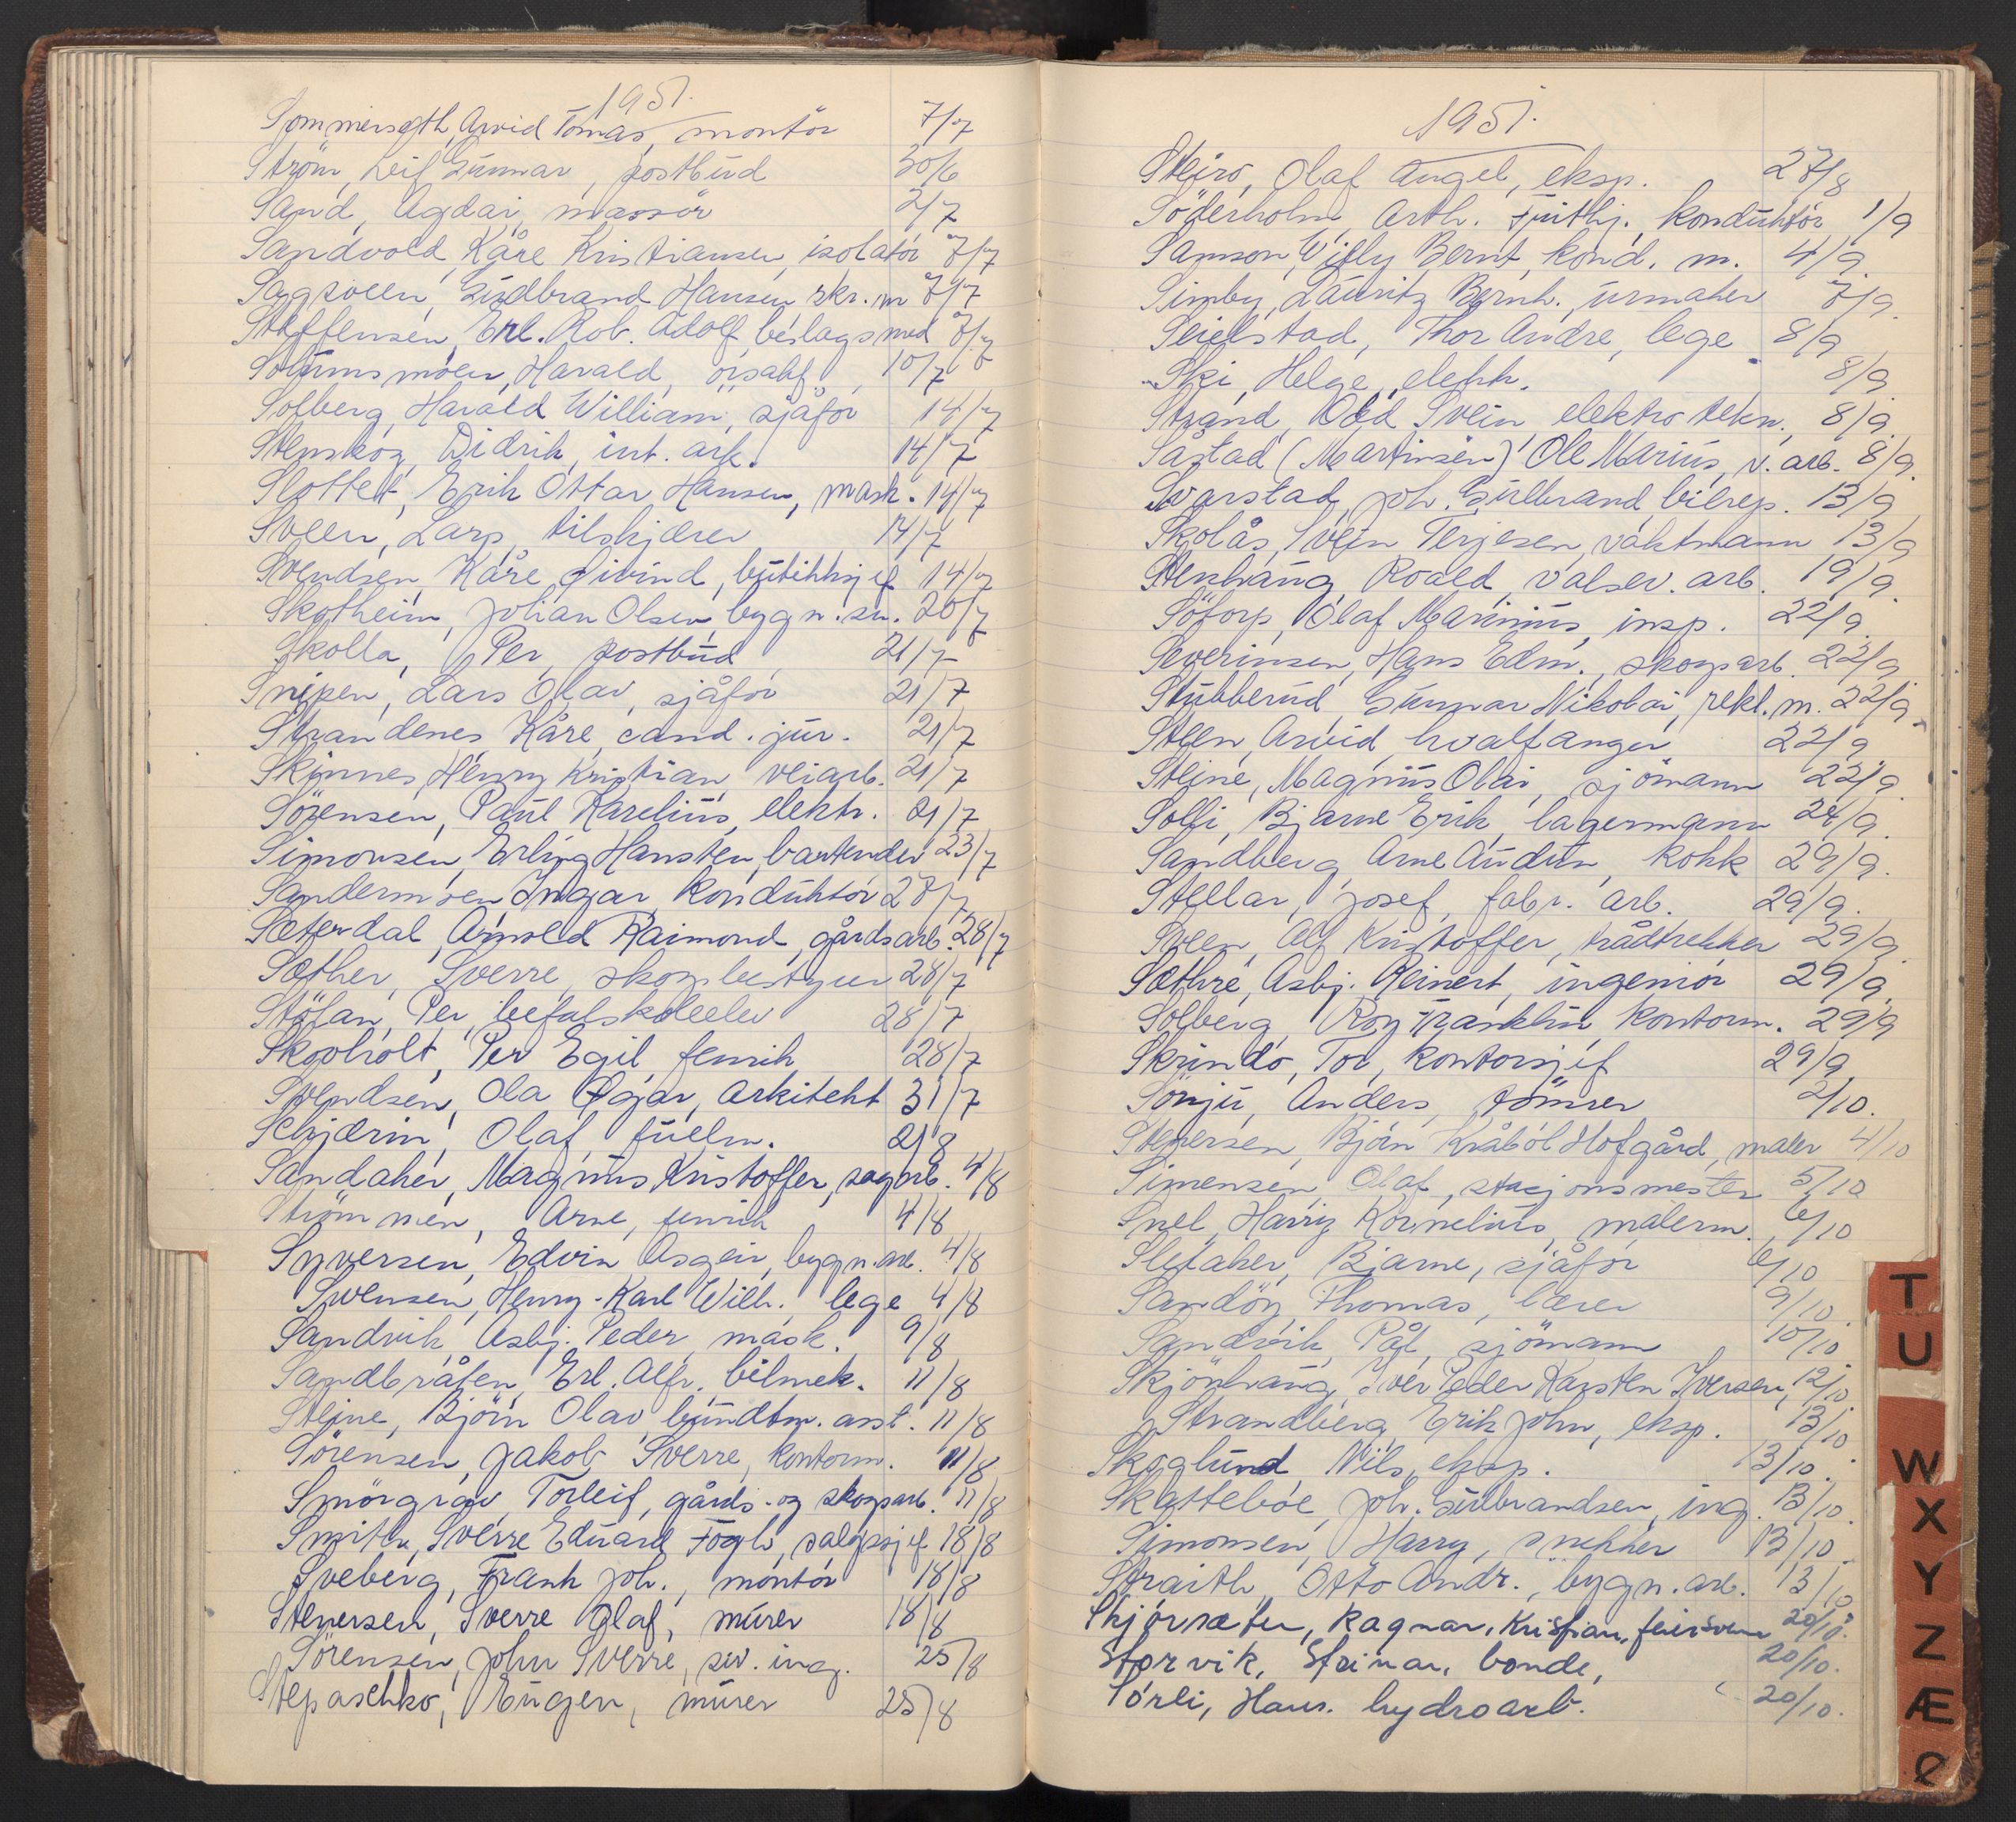 1951.
Sommerseth, Arvid Tomas, montör 7/7
Ström, Leif Gunnar, postbud 30/6
Sand, Agdai, massör 2/7
Sandvold, Kåre Kristiansen, isolatör 7/7
Gudbrand Hansen, skr. m 7/7
Steffensen, Erl. Rob. Adolf, beslagsmed 7/7
Harald, 10/7
Solberg, Harald William, sjåför 14/7
Stenskog, Didrik, int. ark. 14/7
Slottet, Erik Ottar Hansen, mask. 14/7
Sveen, Lars, tilskjærer 14/7
Svendsen, Kåre Øivind, butikksjef 14/7
Skotheim, Johan Olsen, bygn.sn. 20/7
Skolla, Per, postbud 21/7
Snipen, Lars Olav, sjåför 21/7
Strandenes, Kåre, cand. jur. 21/7
Skinnes, Henry Kristian, veiarb. 21/7
Sörensen, Paul Karelius, elektr. 21/7
Simonsen, Erling Hansten, bartender 23/7
Sandermoen, Ingar, konduktör 28/7
Sæterdal, Arnold Raimond, gårdsarb. 28/7
Sæther, Sverre, skogbestyrer 28/7
Stölan, Per, befalskoleelev 28/7
Skogholt, Per Egil, fenrik 28/7
Svendsen, Ola Ødgar, arkitekt 31/7
Schjærin, Olaf, fullm. 2/8
Sandaker, Magnus Kristoffer, sagarb. 4/8
Strömmen, Arne, fenrik 4/8
Syversen, Edvin Asgeir, bygn. arb. 4/8
Svensen, Henry-Karl Wilh. lege 4/8
Sandvik, Asbj. Peder, mask. 9/8
Sandbråten, Erl. Alfr. bilmek. 11/8
Steine, Björn Olav, bundtm. asst. 11/8
Sörensen, Jakob Sverre, kontorm. 11/8
Smörgrav, Torleif, gårds- og skogsarb. 11/8
Smith, Sverre Edvard Fogh, salgssjef 18/8
Sveberg, Frank Joh., montör 18/8
Stenersen, Sverre Olaf, murer 18/8
Sörensen, John Sverre, siv. ing. 25/8
Stepaschko, Eugen, murer 25/8
1951.
Steiro, Olaf Angel, eksp. 27/8
Söderholm, Arth. Frithj., konduktör 1/9
Samson, Willy Bernt, kond. m. 4/9
Simby, Lauritz Bernh., urmaker 7/9
Seielstad, Thor Andre, lege 8/9
Ski, Helge, elektr. 8/9
Strand, Odd Svein, elektrotekn. 8/9
Såstad (Martinsen) Ole Marius, v. arb. 8/9
Svarstad, Joh. Gulbrand, bilrep. 13/9
Skolås, Svein Terjesen, vaktmann 13/9
Stenhaug, Roald, valsev. arb. 19/9
Söforp, Olaf Marinius, insp. 22/9
Severinsen, Hans Edm., skogsarb. 22/9
Stubberud, Gunnar Nikolai, rekl. m. 22/9
Steen, Arvid, hvalfanger 22/9
Steine, Magnus Olai, sjömann 22/9
Solli, Bjarne Erik, lagermann 24/9
Sandberg, Arne Audun, kokk 29/9
Stellar, Josef, fabr. arb. 29/9
Sveen, Alf Kristoffer, trådtrekker 29/9
Sæthre, Asbj. Reinert, ingeniör 29/9
Solberg, Roy Franklin, kontorm. 29/9
Skrindo, Tor, kontorsjef 29/9
Sönju, Anders, tömrer 2/10.
Stenersen, Björn Kråböl Hofgård, maler 4/10
Simensen, Olaf, stasjonsmester 5/10
Snel, Harry Kornelius, malerm. 6/10
Sletaker, Bjarne, sjåför 6/10
Sandöy, Thomas, lærer 9/10
Sandvik, Pål, sjömann 10/10
Skjönhaug, Iver Peder Karsten Iversen, 12/10
Strandberg, Erik John, eksp. 13/10
Skoglund, Nils, eksp. 13/10.
Skatteböe, Joh. Gulbrandsen, ing. 13/10.
Simonsen, Harry, snekker 13/10
Straith, Otto Andr., bygn. arb. 13/10
Skjörsæter, Ragnar, Kristian, feiersven 20/10.
Storvik, Steinar, bonde, 20/10.
Sörli, Hans. hydroarb. 20/10.
T
U
W
X
Y
Z
Æ
Ø